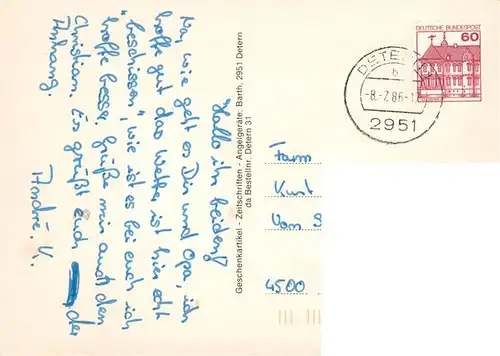 "Hallo ihr beiden!
Na, wie geht es Dir und Opa, ich
hoffe gut das Wetter ist hier echt
"beschissen", wie ist es bei euch ich
hoffe besser. Grüße mir auch den
Christian. Es grüßt euch der
Anhang.
André. K.
Geschenkartikel - Zeitschriften - Angelgeräte: Barth, 2951 Detern
da Bestellnr. Detern 31
DEUTSCHE BUNDESPOST
60
DETERN
b
-8.-7.86-1
2951
Fam
Kurt
Von S
4500